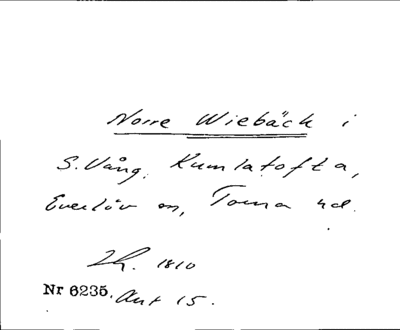 Norre Wiebäck i
S. Vång, Kumlatofta,
Everlöv sn, Torna hd.
Lh. 1810
Nr 6235. Akt 15.